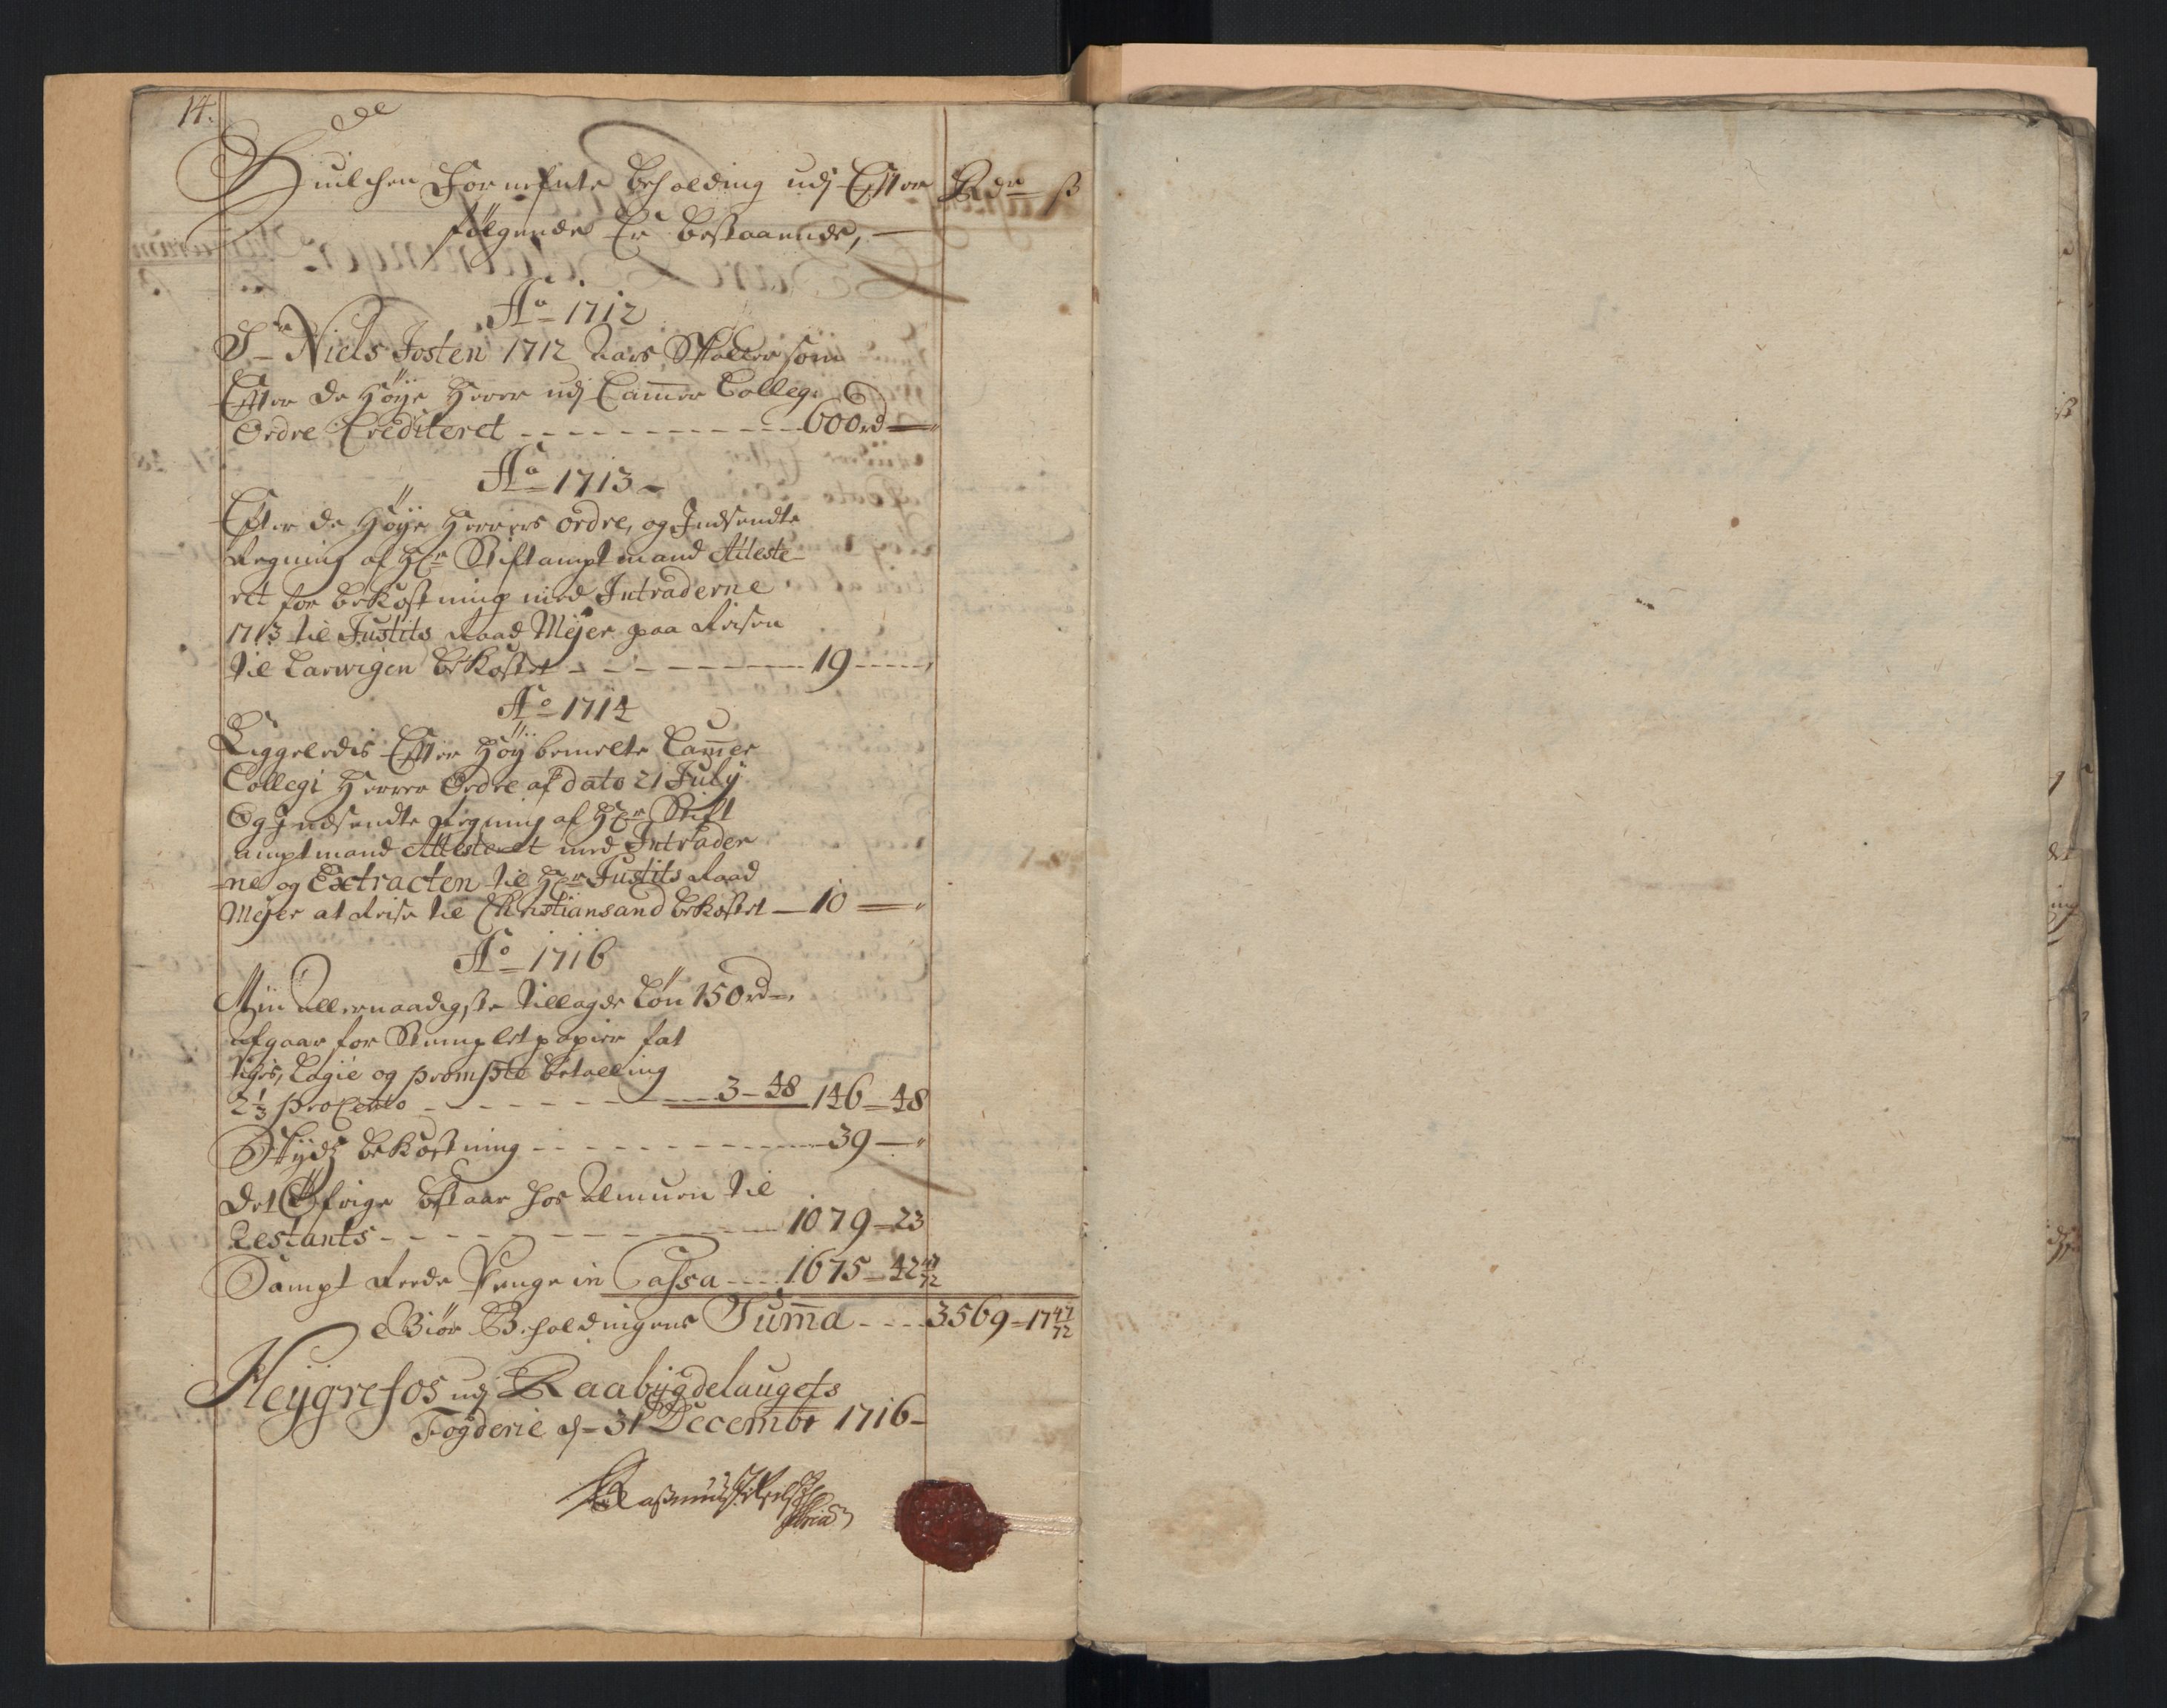 14.
Huilchen Formeente beholding udj Efter Rdr ß
følgende Er bestaaende,
Ao 1712
Sr Niels Josten 1712 Aars Skatter som
Efter de Høye Herrer udj Cammer Collegi
Ordre Crediteret 600 rd
Ao 1713
Efter de Høye Herrers ordre, og Indsendte
Regning af Hr Stiftamptmand Atteste-
ret for bekostning med Intraderne
1713 til Justits Raad Mejer paa Reisen
til Larwigen bekostet 19
Ao 1714
Liggeledis Efter Høybemelte Cammer
Collegi Herrer Ordre af dato 21 July
Og Indsendte Regning af Hr Stift
amptmand Attesteret med Intrader
-ne og Extracten til Hr Justits Raad
Mejer at Reise til Christiansand bekostet 10
Ao 1716
Min Allernaadigste tillagde Løn 150 rd
afgaar for Stemplet papier fat
tiges, Logie og prompte betalling
2 1/3 proCento 3-48 146-48
Skyds bekostning 39
Det Øfrige bestaar hos Almuen til
Restants 1079-23
Sampt Reede Penge in Cassa 1675-42 47/72
Giør Beholdningens Summa 3569-17 47/72
Heygrefos udj Raabygdelaugets
Fogderie d 31 Decembr 1716